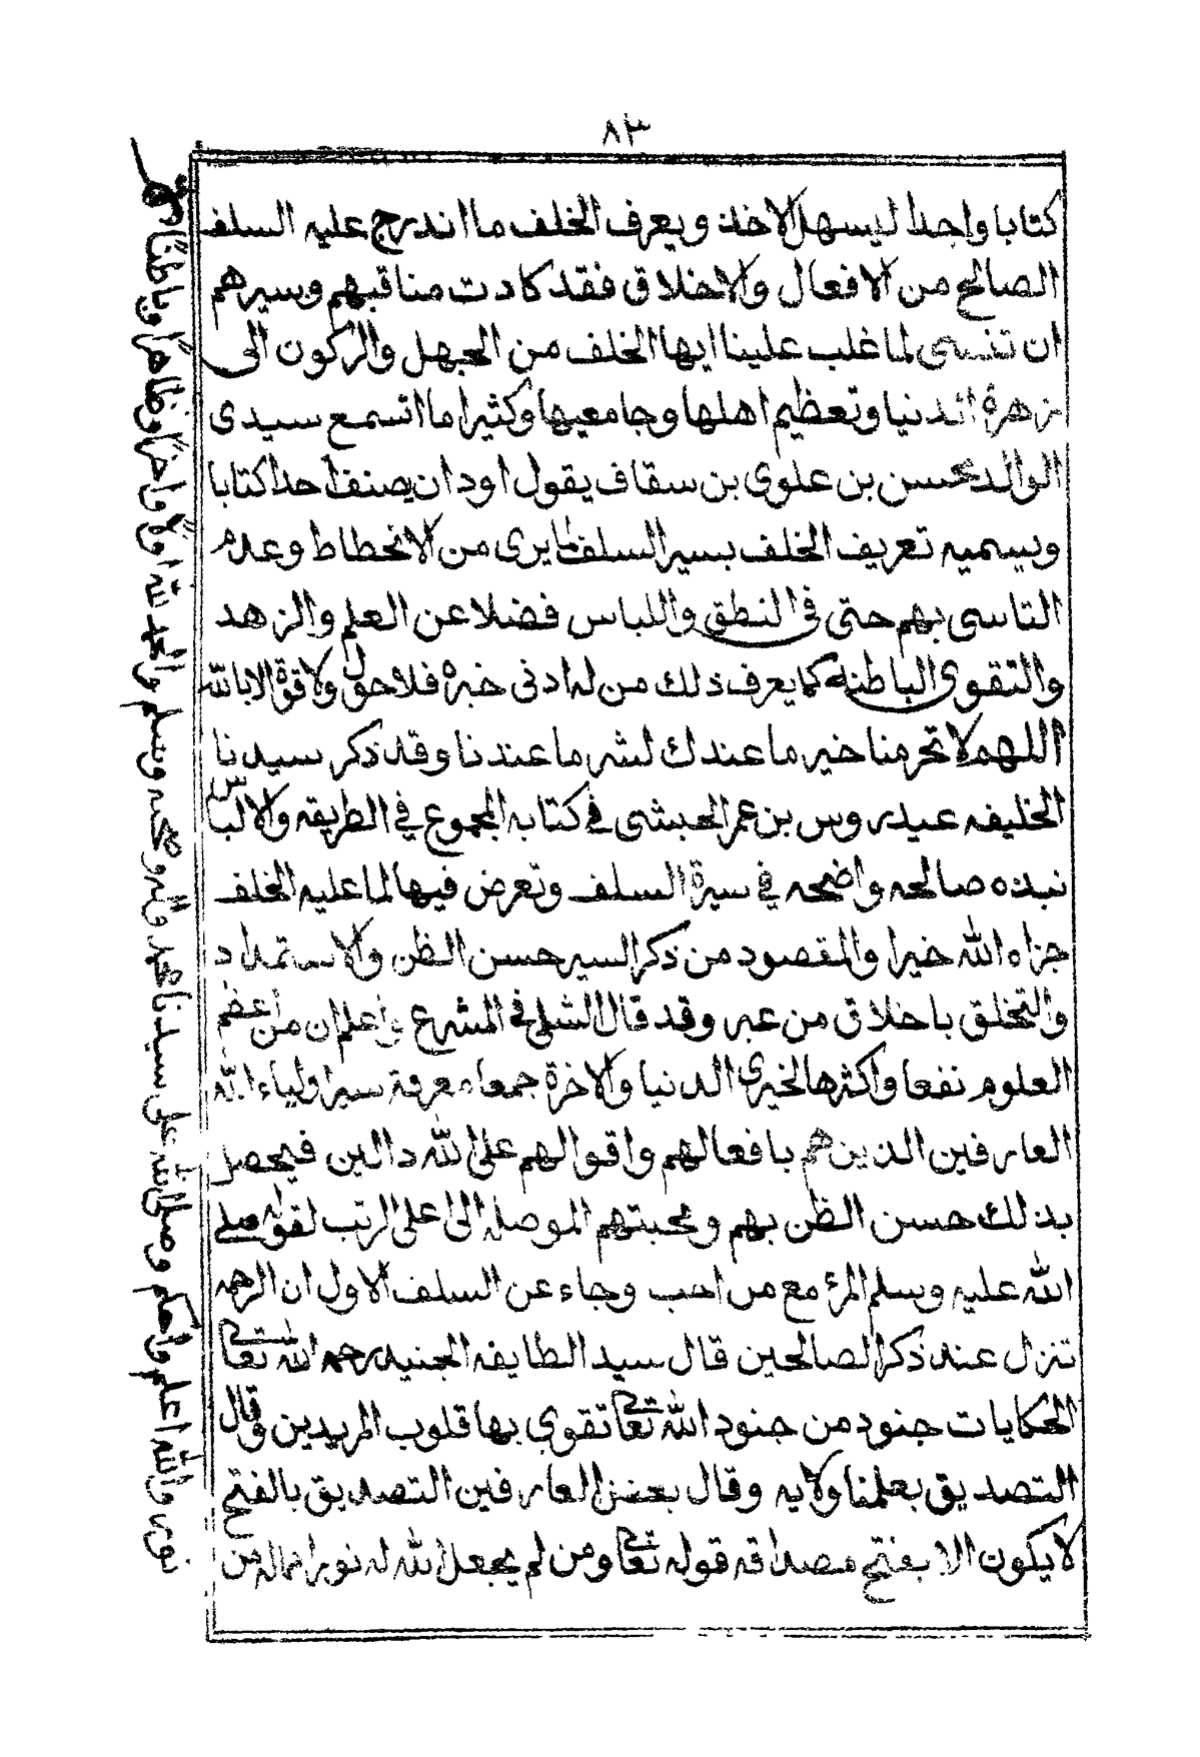 ٨٣
كتابا واحدا ليسهل الاخذ ويعرف الخلف ما اندرج عليه السلف
الصالح من الافعال والاخلاق فقد كادت مناقبهم وسيرهم
ان تنسى لما غلب علينا ايها الخلف من الجهل والركون الى
زهرة الدنيا وتعظيم اهلها وجامعيها وكثيرا ما اتسمع سيدى
الوالد محسن بن علوى بن سقاف يقول اود ان يصنف احد كتابا
ويسميه تعريف الخلف بسير السلف لما يرى من الانحطاط وعدم
التاسى بهم حتى فى النطق واللباس فضلا عن العلم والزهد
والتقوى الباطنه كما يعرف ذلك من له ادنى خبره فلا حول ولا قوة الا بالله
اللهم لا تحرمنا خير ما عندك لشر ما عندنا وقد ذكر سيدنا
الخليفه عيدروس بن عمر الحبشى فى كتابه المجموع في الطريقه والالباس
نبذه صالحه واضحه في سيرة السلف وتعرض فيها لما عليه الخلف
جزاه الله خيرا والمقصود من ذكر السير حسن الظن والاستمداد
والتخلق باخلاق من عبر وقد قال الشلى فى المشرع واعلم ان من أعظم
العلوم نفعا واكثرها لخيرى الدنيا والاخرة جمعا معرفة سير اولياء الله
العارفين الذين هم بافعالهم واقوالهم على الله دالين فيحصل
بذلك حسن الظن بهم ومحبتهم الموصله الى اعلى الرتب لقوله صلى
الله عليه وسلم المرؤ مع من احب وجاء عن السلف الاول ان الرحمه
تنزل عند ذكر الصالحين قال سيد الطايفه الجنيد رحمه الله تعالى
الحكايات جنود من جنود الله تعالى تقوى بها قلوب المريدين وقال
التصديق بعلمنا ولايه وقال بعض العارفين التصديق بالفتح
لا يكون الا بفتح مصداقه قوله تعالى ومن لم يجعل الله له نورا فما له من
نور والله اعلم واحكم وصلى الله على سيدنا محمد وآله وصحبه وسلم والحمد لله اولاً واخراً وظاهراً وباطناً